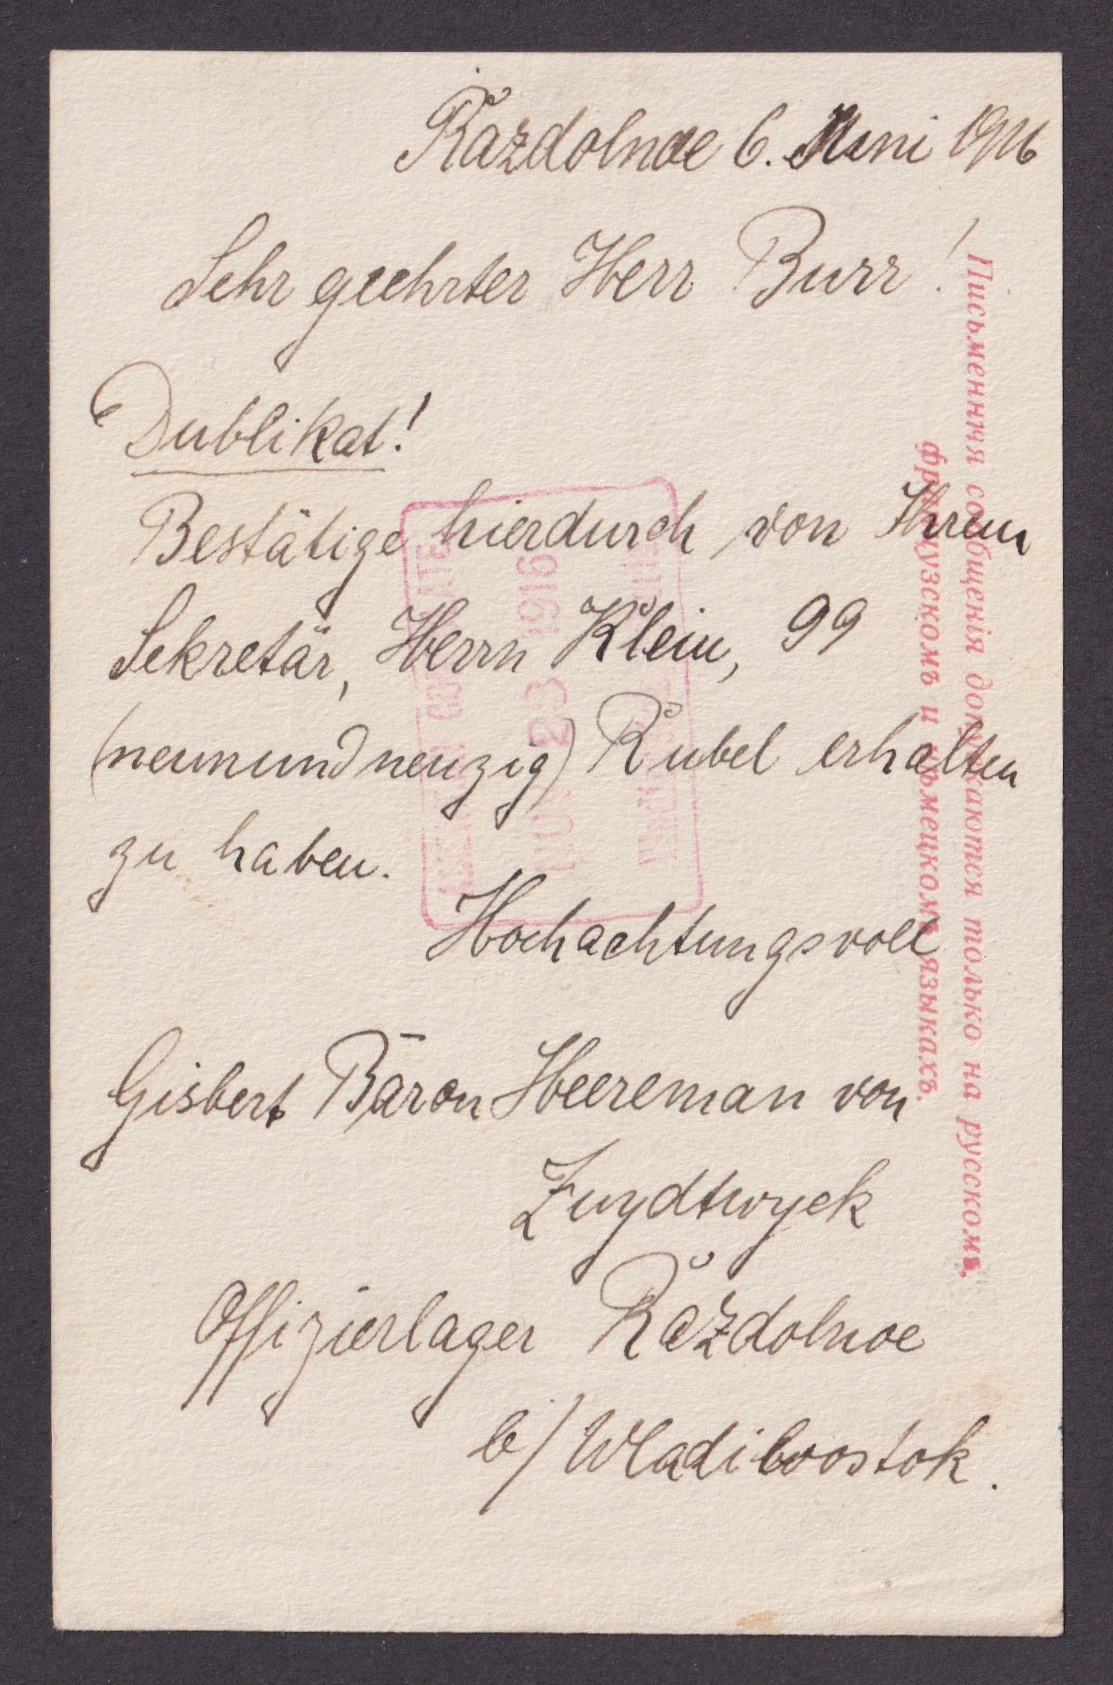 Razdolnoe 6. Juni 1916
Sehr geehrter Herr Burr!
Dublikat!
Bestätige hierdurch von Ihrem
Sekretär, Herrn Klein, 99
(neunundneuzig) Rubel erhalten
zu haben.
Hochachtungsvoll
Gisbert Baron Heereman von
Zuydtwyck
Offizierlager Razdolnoe
b/ Wladiwostok.
Письменныя сообщенія допускаются только на русскомъ,
французскомъ и нѣмецкомъ языкахъ.
23 1916